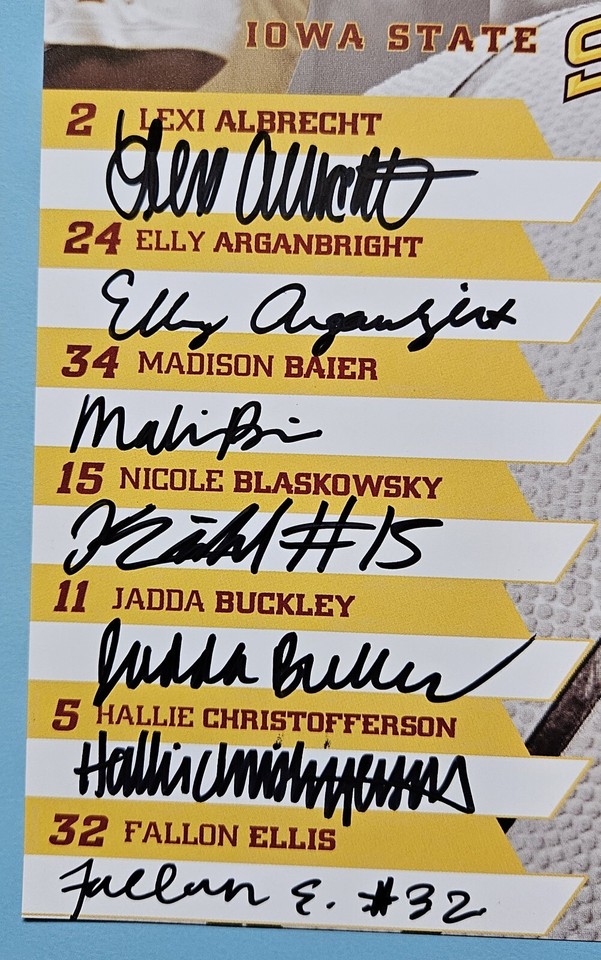 IOWA STATE
2 LEXI ALBRECHT
24 ELLY ARGANBRIGHT
Elly Arganbright
34 MADISON BAIER
15 NICOLE BLASKOWSKY
#15
11 JADDA BUCKLEY
Jadda Buckley
5 HALLIE CHRISTOFFERSON
Hallie Christofferson
32 FALLON ELLIS
Fallon E. #32